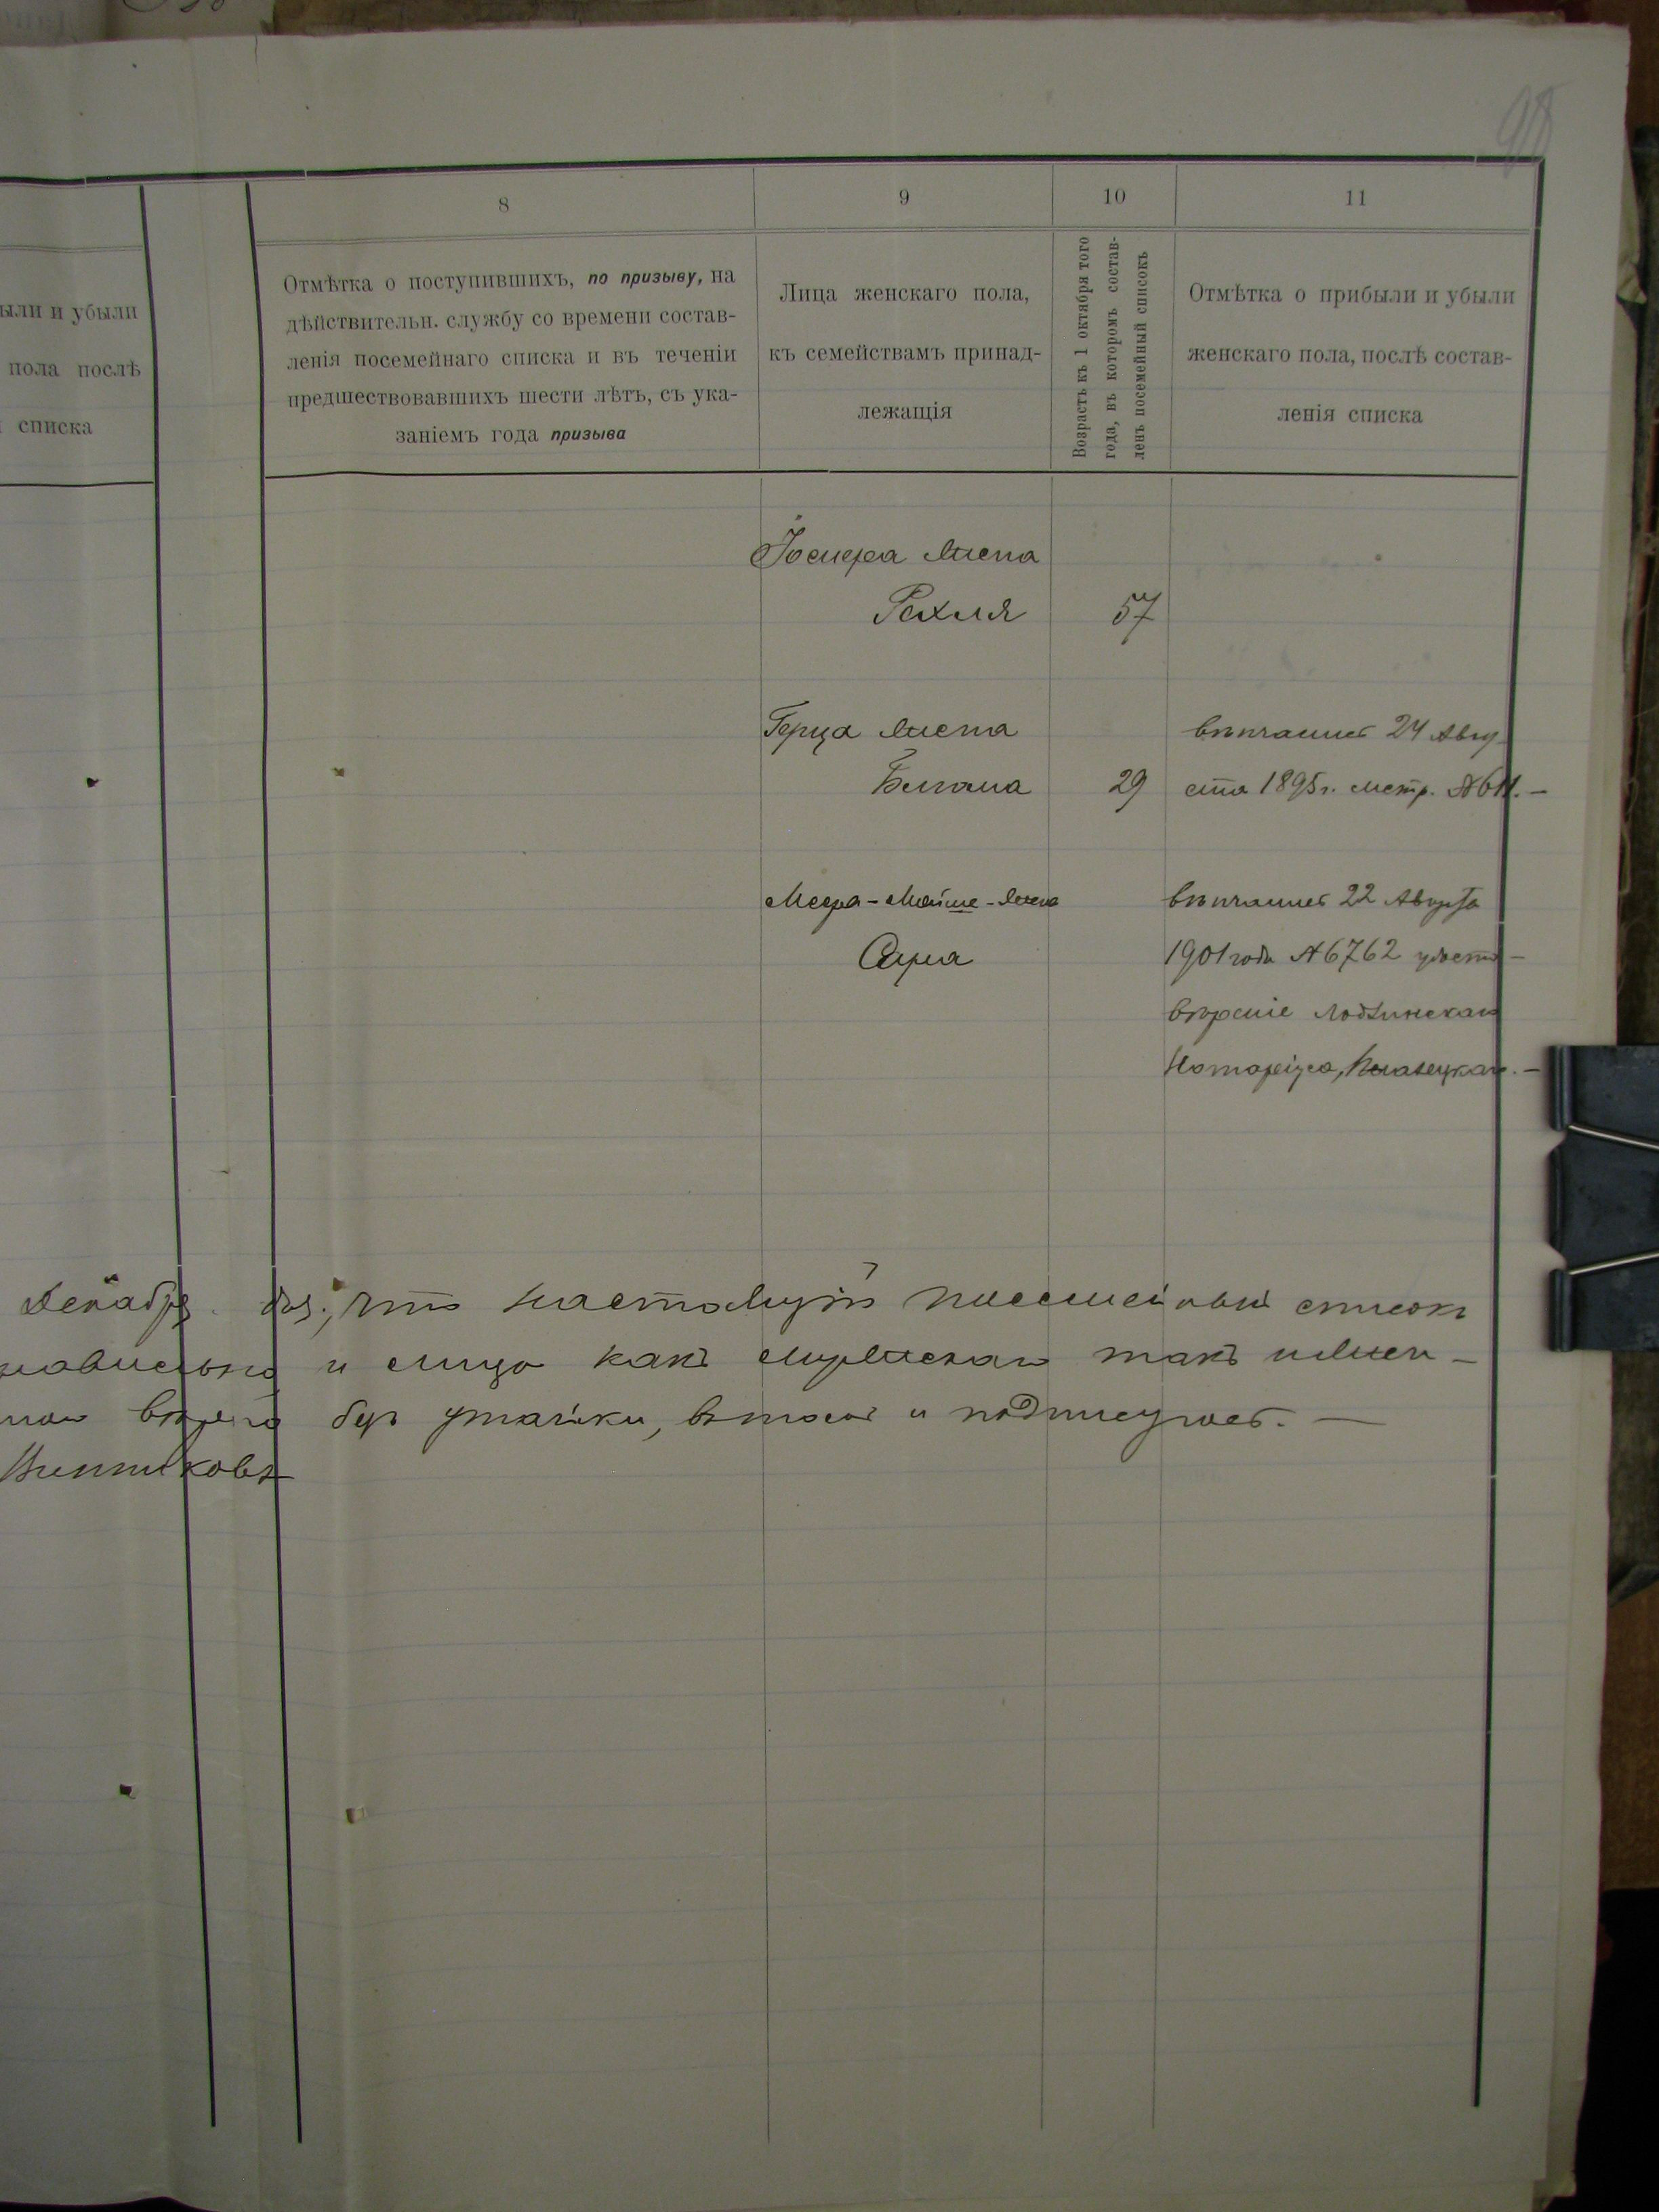 98
8
9
10
11
ыли и убыли
пола послѣ
списка
Отмѣтка о поступившихъ, по призыву, на
дѣйствительн. службу со времени состав-
ленія посемейнаго списка и въ теченіи
предшествовавшихъ шести лѣтъ, съ ука-
заніемъ года призыва
Лица женскаго пола,
къ семействамъ принад-
лежащія
Возрастъ къ 1 октября того
года, въ которомъ состав-
ленъ посемейный списокъ
Отмѣтка о прибыли и убыли
женскаго пола, послѣ состав-
ленія списка
Іосифа жена
Рахля 57
Герца жена вѣнчанiе 24 Авгу-
29 ста 1895 г. метр. №
жена вѣнчанiе 22 Августа
Сура 1901 года № 6762 удосто-
вѣреніе Лодзинскаго
Нотаріуса,
Декабря дня, что настоящій посемейный списокъ
правильно и лица какъ мужскаго такъ и жен-
вѣрно безъ утайки, въ томъ и подписуюсь. —
Винниковъ